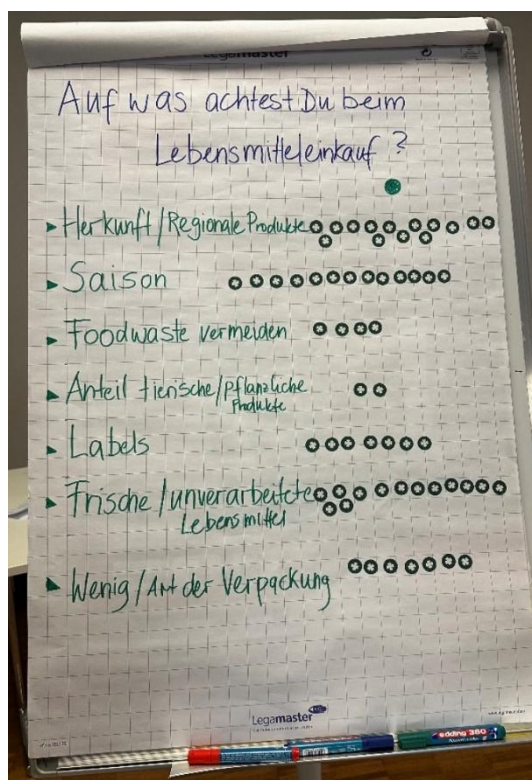 Legamaster
Auf was achtest Du beim
Lebensmitteleinkauf?
Herkunft/Regionale Produkte
Saison
Foodwaste vermeiden
Anteil tierische/pflanzliche
Produkte
Labels
Frische/unverarbeitete
Lebensmittel
Wenig/Art der Verpackung
Legamaster
edding 380